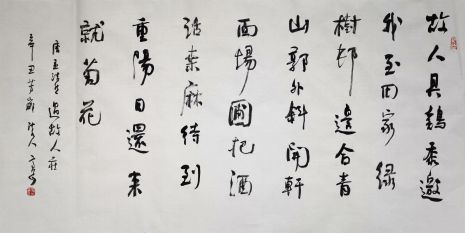 故人具鷄黍邀
我至田家綠
樹邨邊合青
山郭外斜開軒
面場圃把酒
話桒麻待到
重陽日還来
就菊花
唐孟浩然過故人莊
辛丑